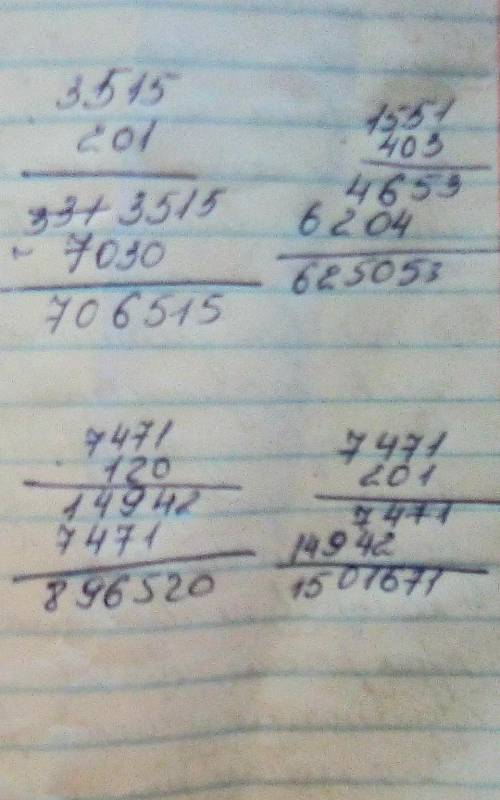 3515
201
33+ 3515
- 7030
706515
1551
403
4653
6204
625053
7471
120
14942
7471
896520
7471
201
7471
14942
1501671